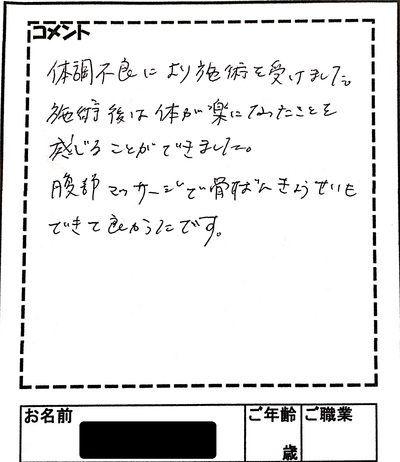 コメント
体調不良により施術を受けました。
施術後は体が楽になったことを
感じることができました。
腹部マッサージで骨ばんきょうせいも
できて良かったです。
お名前
ご年齢
ご職業
歳